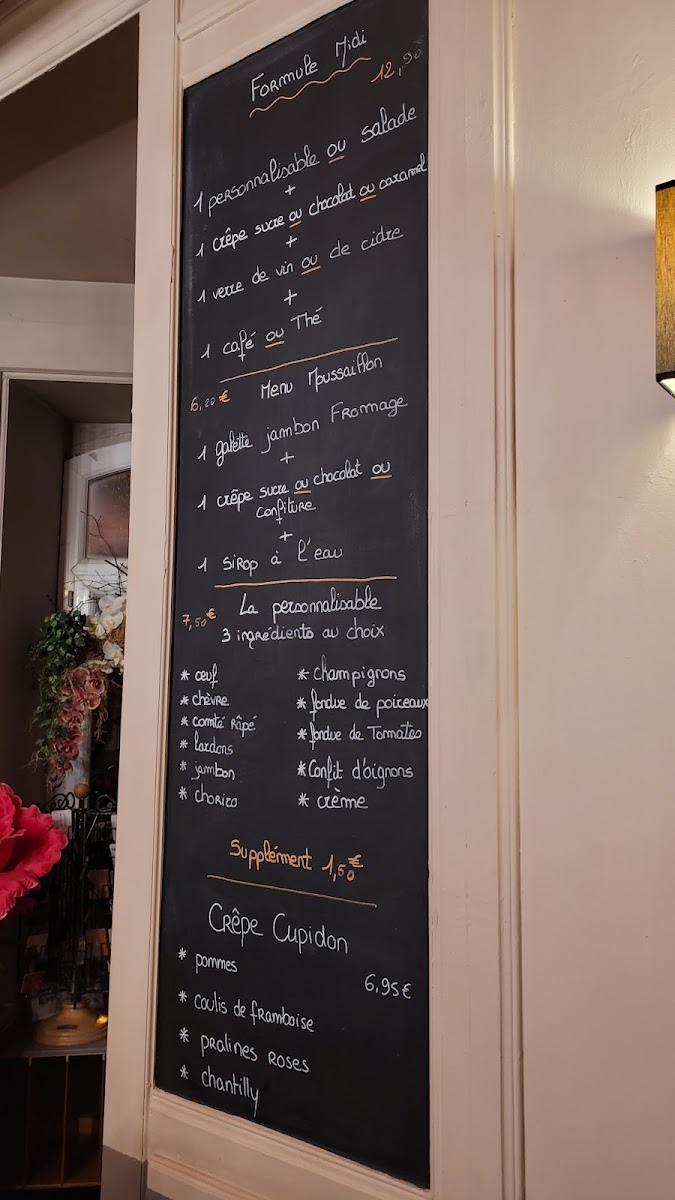 Formule Midi
12,90
1 personnalisable ou salade
+
1 crêpe sucre ou chocolat ou caramel
+
1 verre de vin ou de cidre
+
1 café ou Thé
6,20 € Menu Moussaillon
1 galette jambon Fromage
+
1 crêpe sucre ou chocolat ou
confiture
+
1 sirop à l'eau
7,50 € La personnalisable
3 ingrédients au choix
* œuf
* chèvre
* comté râpé
* lardons
* jambon
* chorizo
* champignons
* fondue de poireaux
* fondue de Tomates
* Confit d'oignons
* crème
Supplément 1,50 €
Crêpe Cupidon
6,95 €
* pommes
* coulis de framboise
* pralines roses
* chantilly